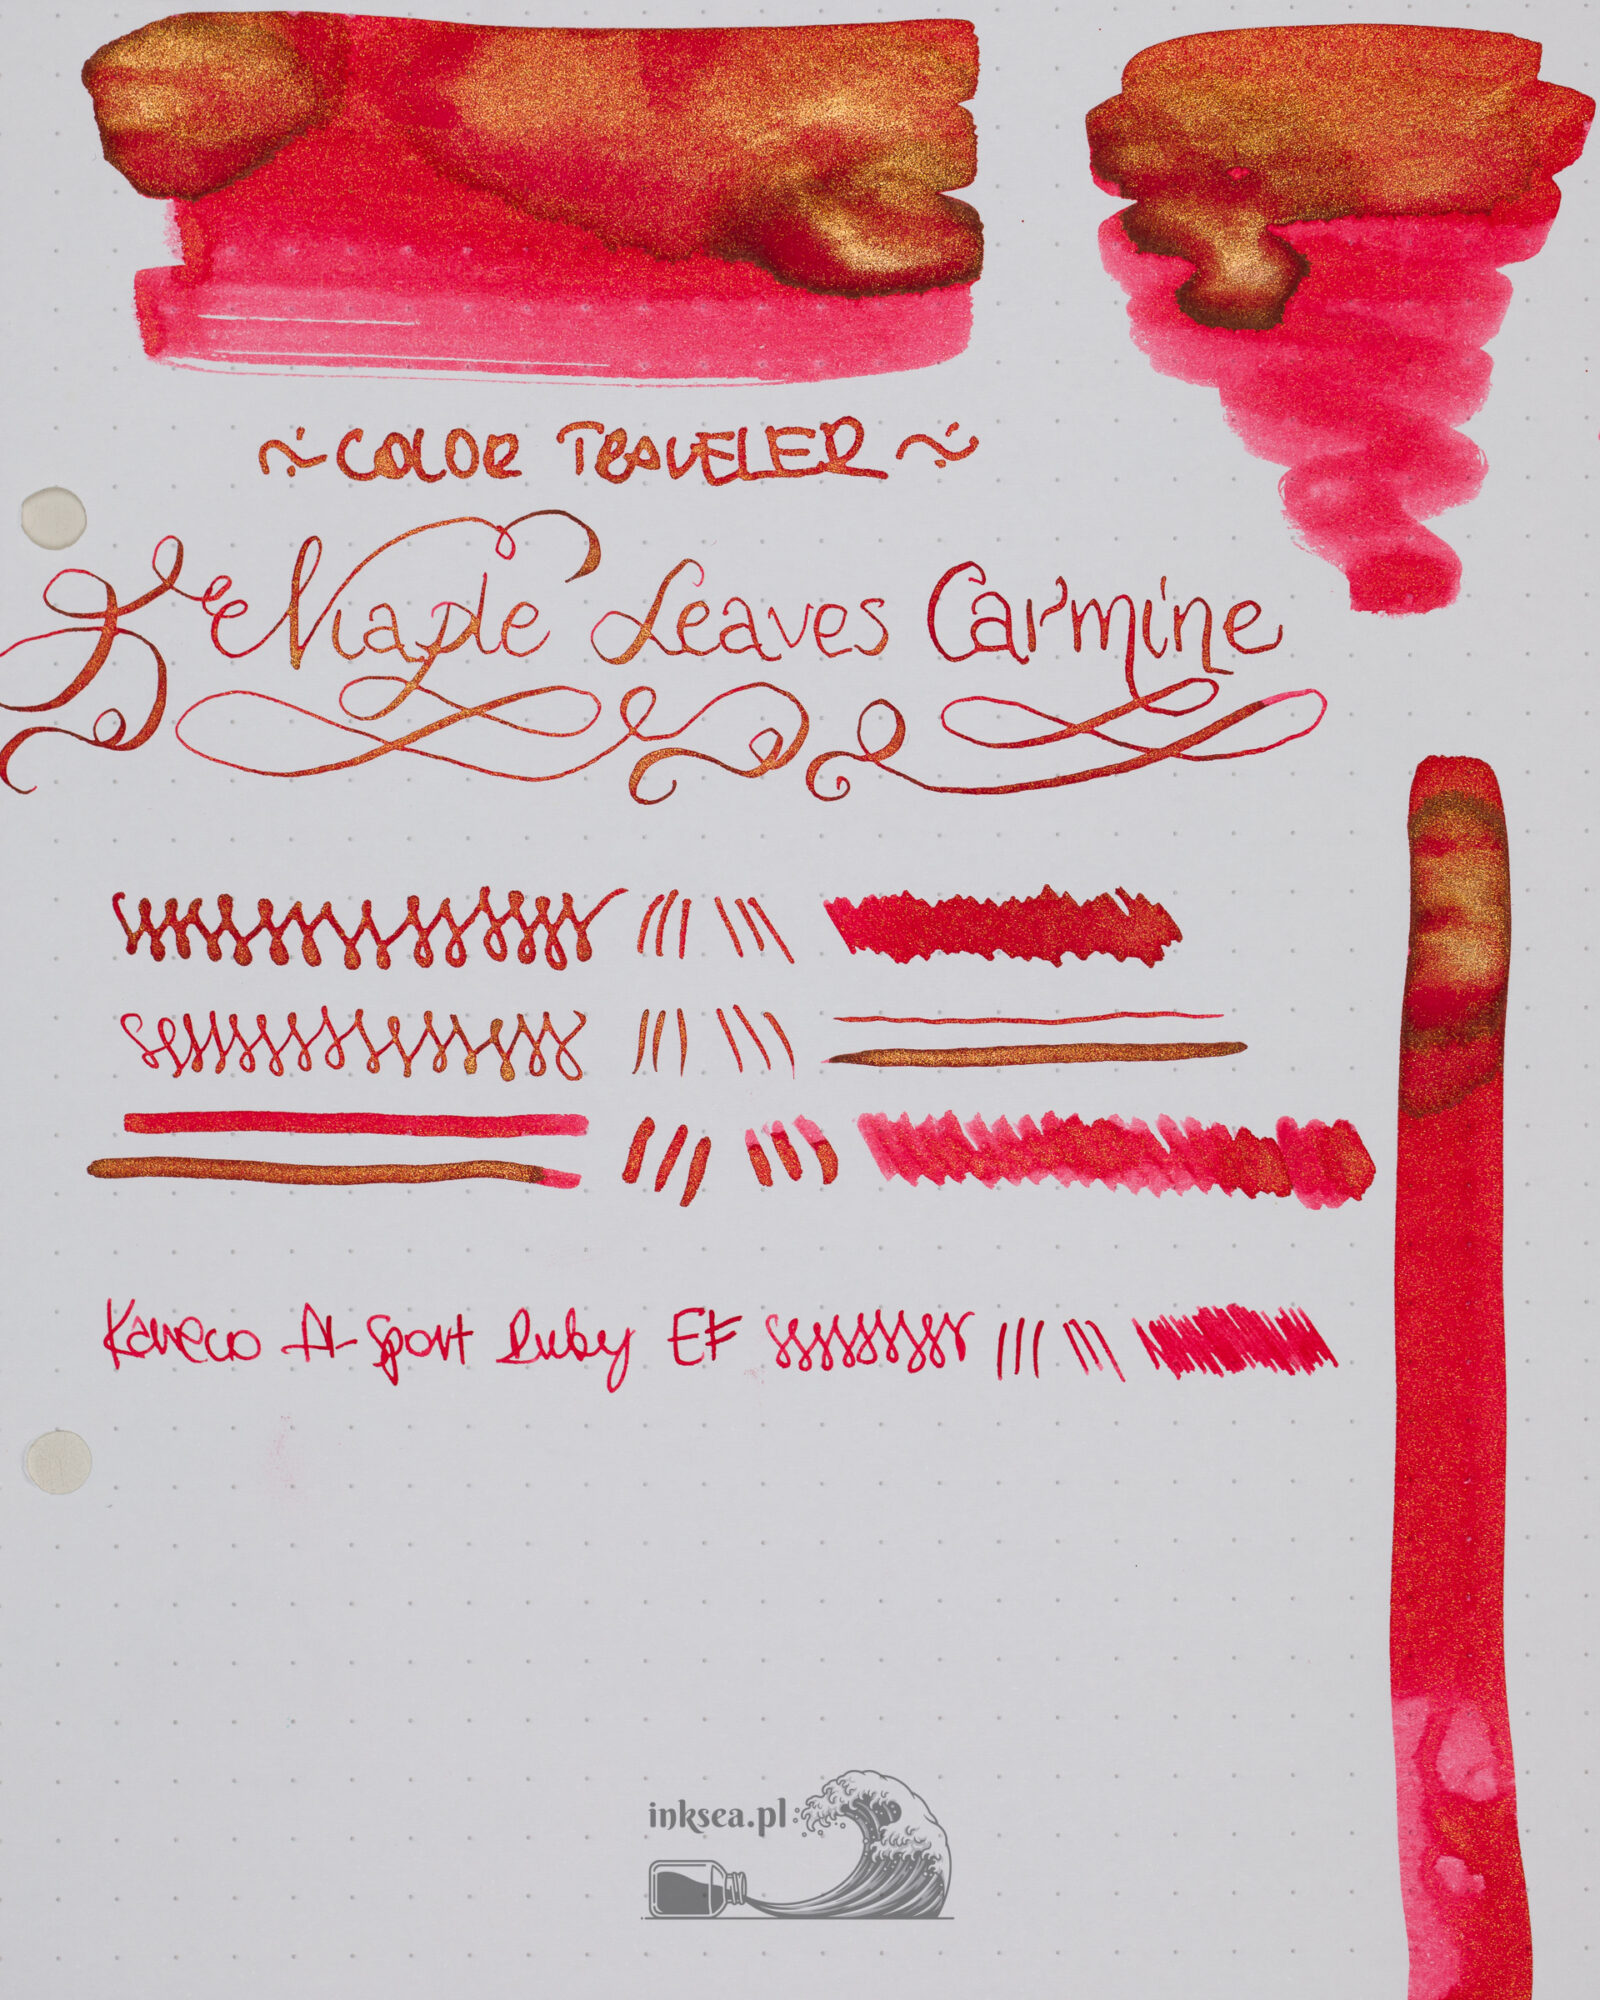 ~ COLOR TRAVELER ~
Maple Leaves Carmine
Kaweco Al-Sport Ruby EF
inksea.pl